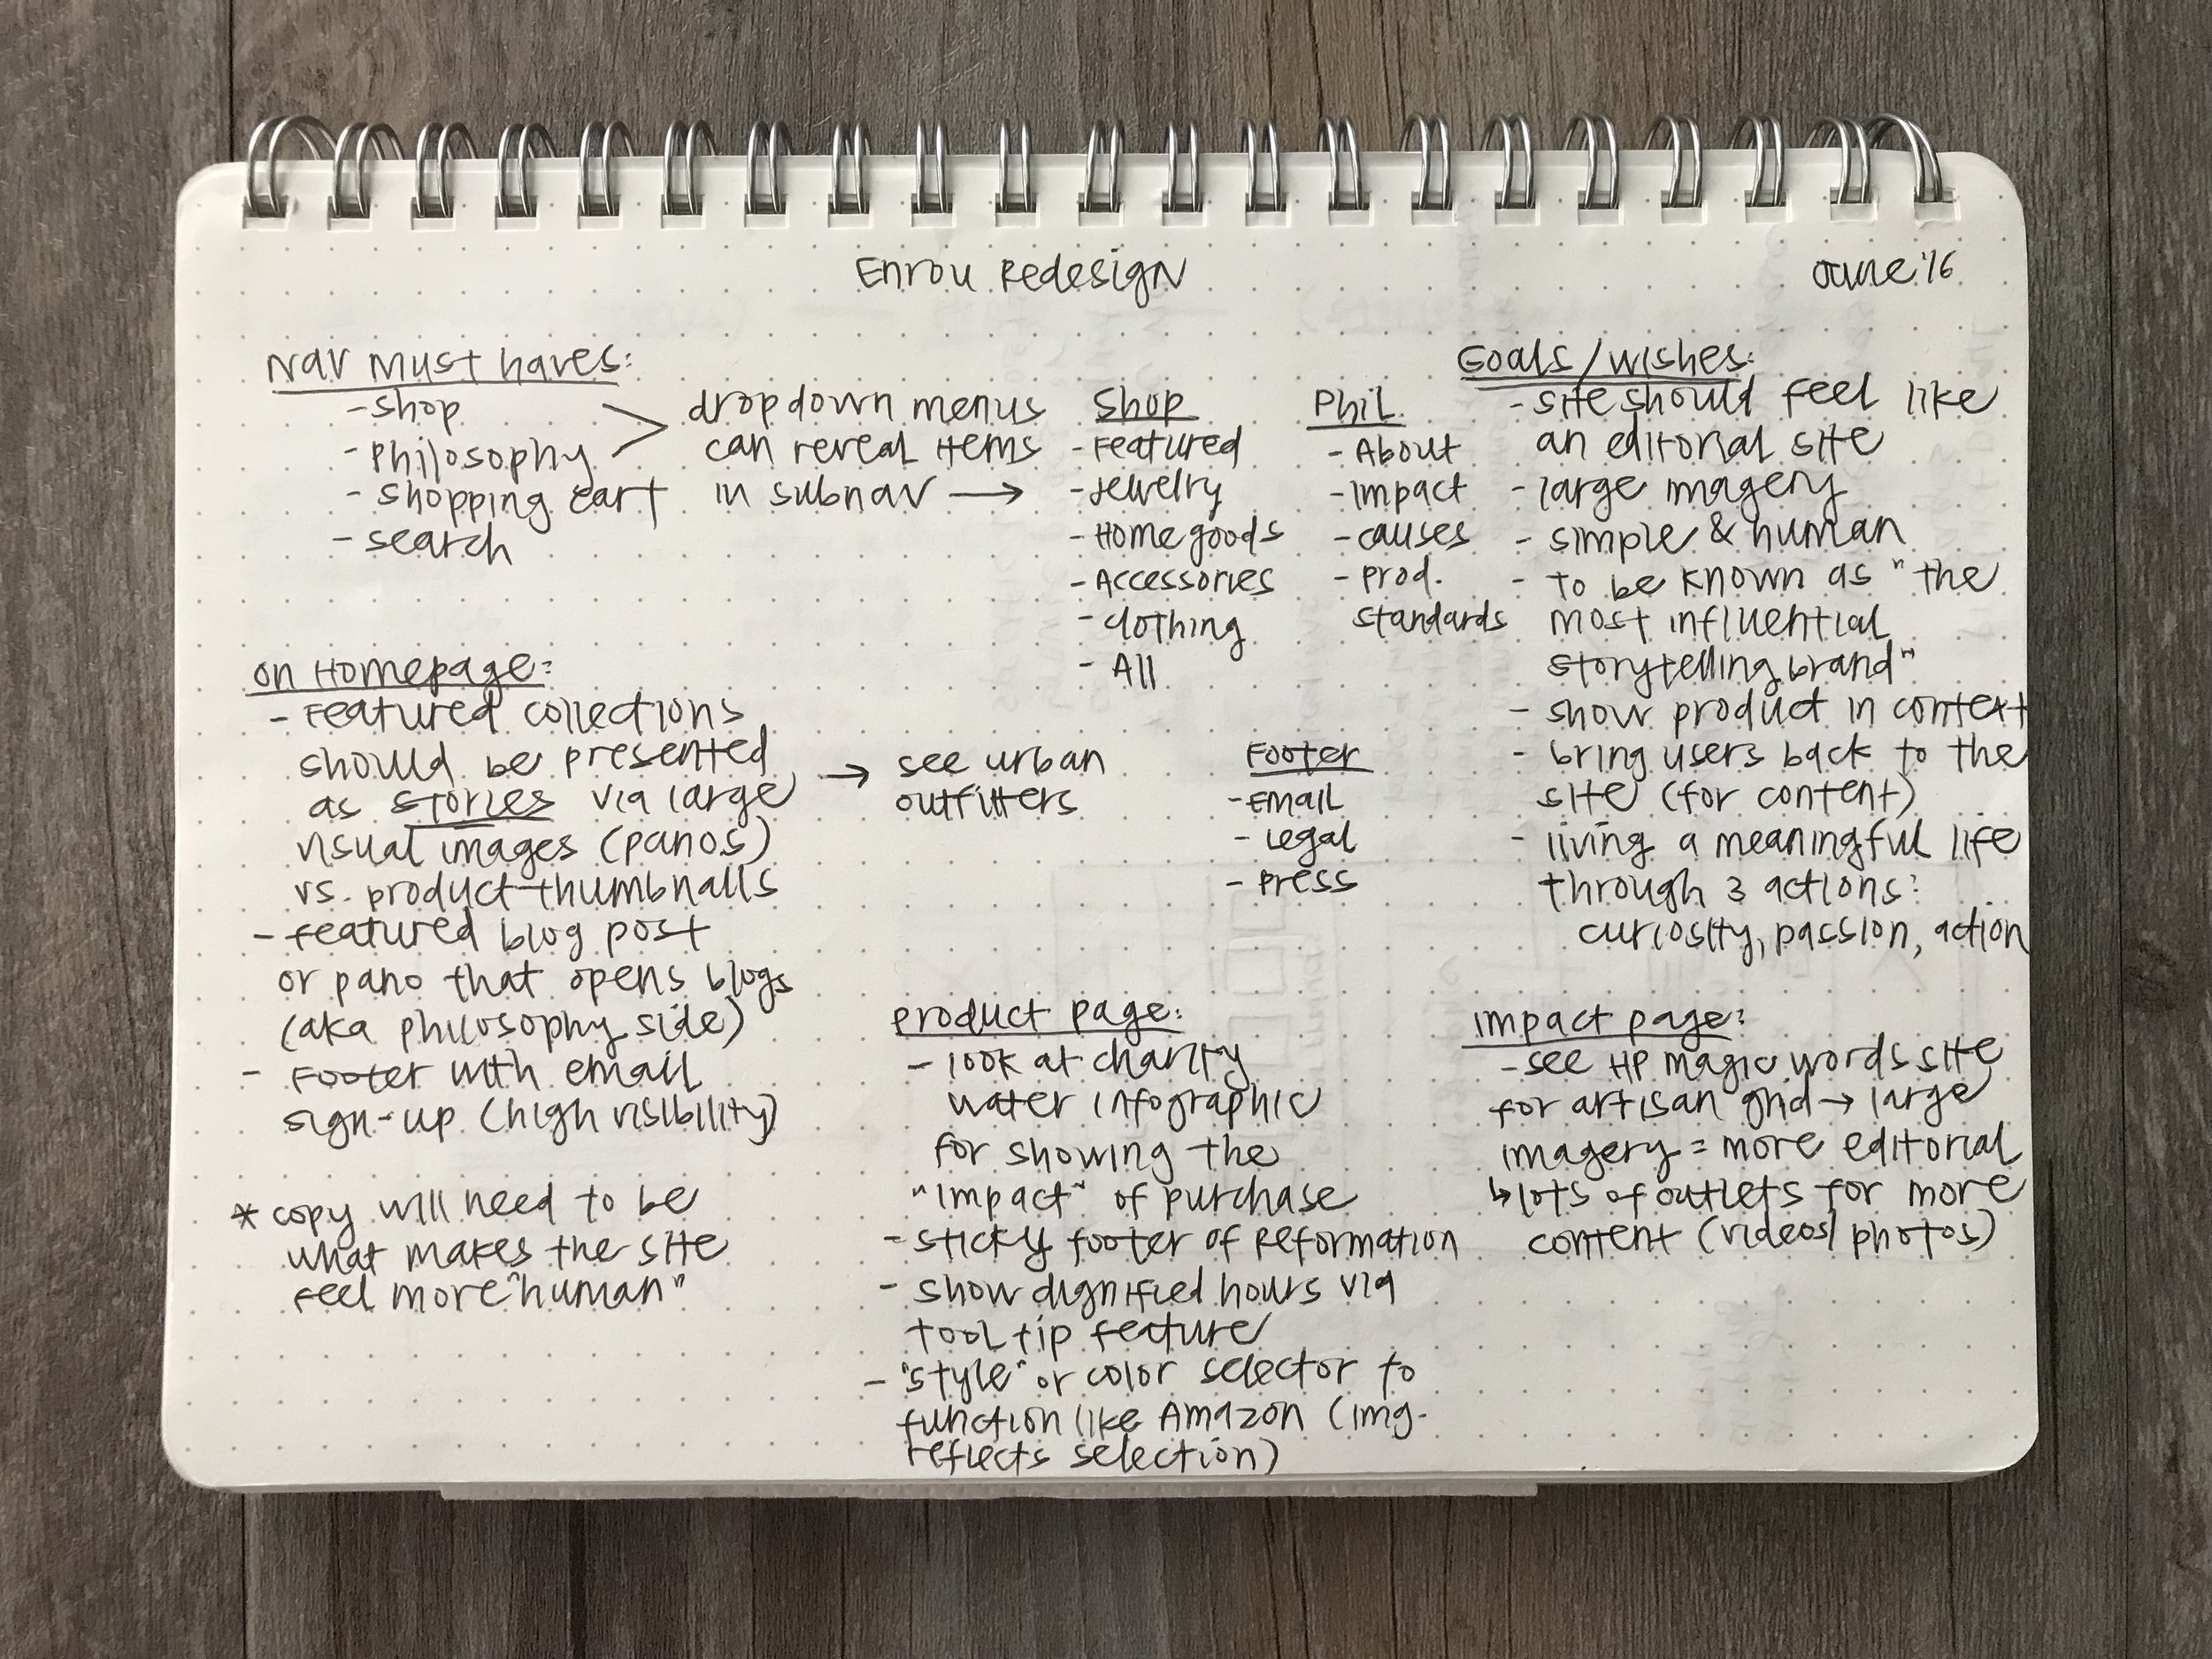 Enrou Redesign
June '16
Nav Must haves:
- shop
- Philosophy
- shopping cart
- search
dropdown menus
can reveal items
in subnav →
Shop
- Featured
- Jewelry
- Homegoods
- Accessories
- Clothing
- All
Phil.
- About
- Impact
- causes
- prod.
standards
Goals/wishes:
- site should feel like
an editorial site
- large imagery
- simple & human
- to be known as "the
most influential
storytelling brand"
- show product in context
- bring users back to the
site (for content)
- living a meaningful life
through 3 actions:
curiosity, passion, action
on Homepage:
- Featured collections
should be presented
as stories via large
visual images (panos)
vs. product thumbnails
- featured blog post
or pano that opens blogs
(aka philosophy side)
- Footer with email
sign-up (high visibility)
→ see urban
outfitters
Footer
- Email
- Legal
- Press
* copy will need to be
what makes the site
feel more "human"
product page:
- look at charity
water infographic
for showing the
"impact" of purchase
- sticky footer of Reformation
- show dignified hours via
tool tip feature
- "style" or color selector to
function like Amazon (img.
reflects selection)
impact page:
- see HP magic words site
for artisan grid → large
imagery = more editorial
↳ lots of outlets for more
content (videos/photos)